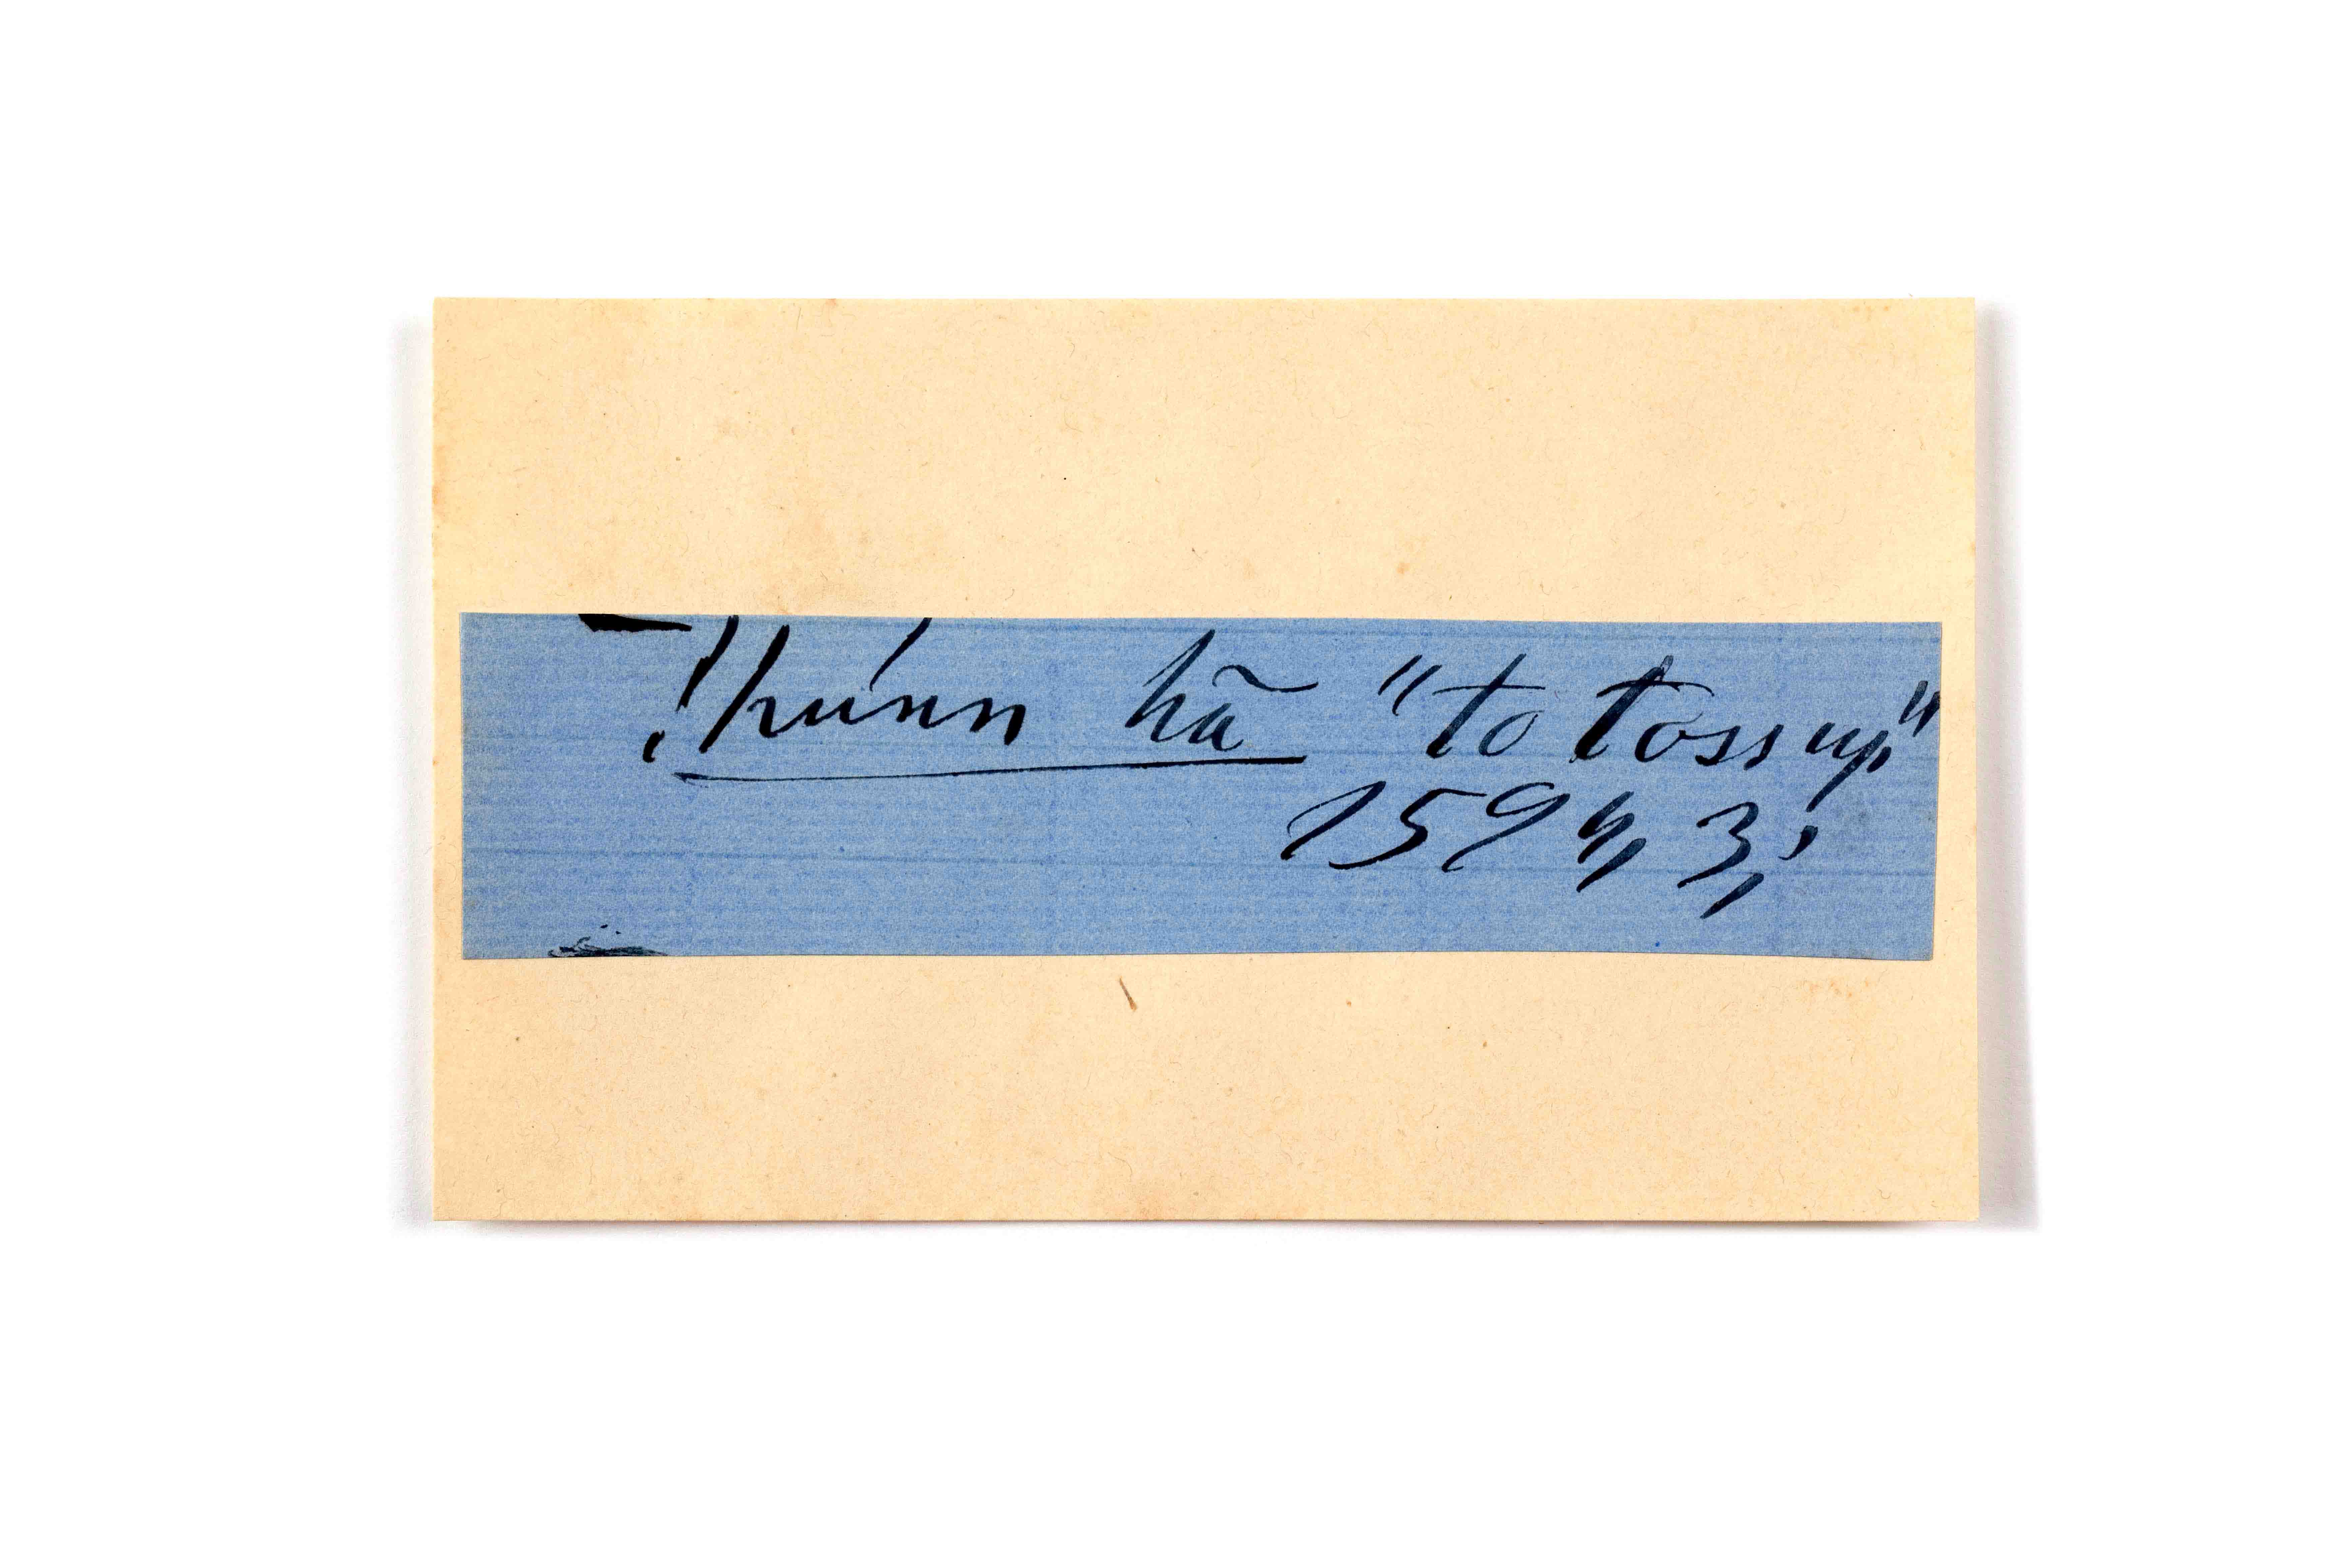 !kúnn hā "to toss up"
1594, 3,'